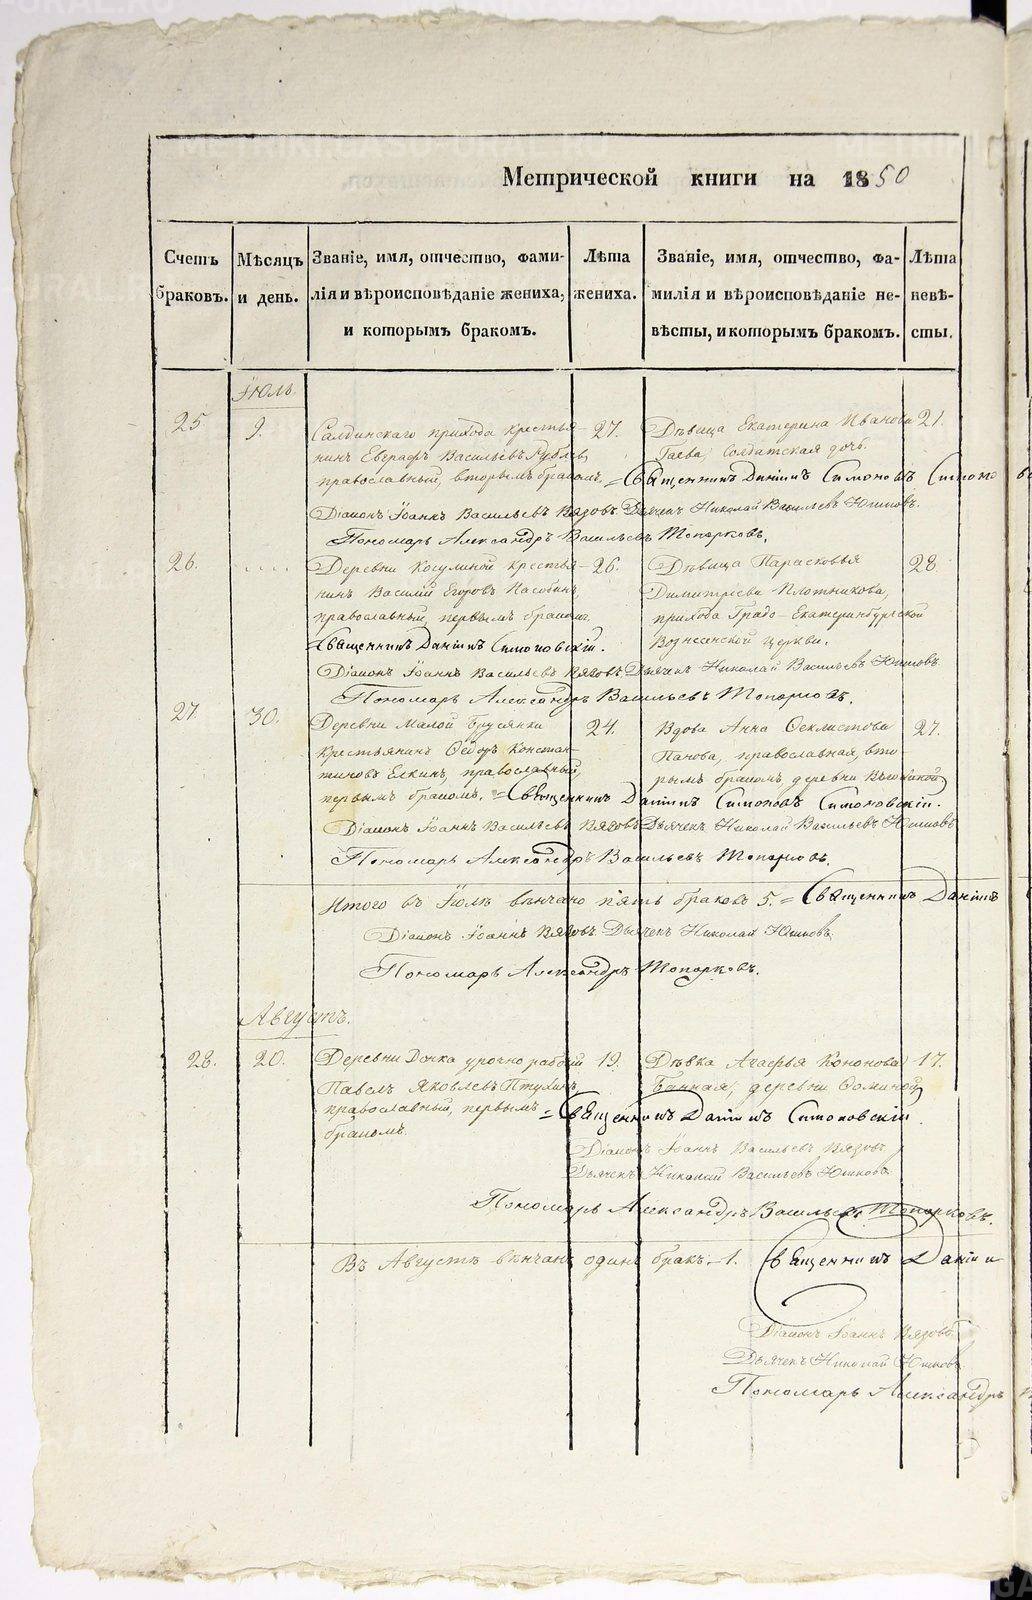 Метрической книги на 1850
Счетъ браковъ.
Мѣсяцъ и день.
Званіе, имя, отчество, фамилія и вѣроисповѣданіе жениха, и которымъ бракомъ.
Лѣта жениха.
Званіе, имя, отчество, фамилія и вѣроисповѣданіе невѣсты, и которымъ бракомъ.
Лѣта невѣсты.
Іюль.
25. 9. Салдинскаго прихода крестья- 27. Дѣвица Екатерина Иванова 21.
нинъ Евграфъ Васильевъ Гаева, солдатская дочь.
православный, вторымъ бракомъ. = Священникъ Даніилъ Симоновъ
Діаконъ Іоаннъ Васильевъ Вязовъ Дьячекъ Николай Васильевъ Юшковъ.
Пономарь Александръ Васильевъ Топорковъ.
26. .... Деревни Косулиной крестья- 26. Дѣвица Парасковья 28
нинъ Василій Егоровъ Димитріева Плотникова,
православный, первымъ бракомъ. прихода Градо-Екатеринбургской
Священникъ Даніилъ Симоновскій. Вознесенской церкви.
Діаконъ Іоаннъ Васильевъ Вязовъ. Дьячекъ Николай Васильевъ Юшковъ
Пономарь Александръ Васильевъ Топорковъ.
27. 30. Деревни Малой Брусянки 24. Вдова Анна Феклистова 27.
крестьянинъ Ѳеодоръ Констан- Панова, православная, вто-
тиновъ Елкинъ, православный, рымъ бракомъ деревни
первымъ бракомъ. = Священникъ Даніилъ Симоновъ Симоновскій.
Діаконъ Іоаннъ Васильевъ Вязовъ Дьячекъ Николай Васильевъ Юшковъ
Пономарь Александръ Васильевъ Топорковъ.
Итого въ Іюлѣ вѣнчано пять браковъ 5. = Священникъ Даніилъ
Діаконъ Іоаннъ Вязовъ. Дьячекъ Николай Юшковъ.
Пономарь Александръ Топорковъ.
Августъ.
28. 20. Деревни урочно рабочій 19. Дѣвка Агафья Кононова 17.
Павелъ Яковлевъ Птухинъ, деревни Фоминой
православный, первымъ = Священникъ Даніилъ Симоновскій
бракомъ.
Діаконъ Іоаннъ Васильевъ Вязовъ
Дьячекъ Николай Васильевъ Юшковъ.
Пономарь Александръ Васильевъ Топорковъ.
Въ Августѣ вѣнчанъ одинъ бракъ - 1. Священникъ Даніи
Діаконъ Іоаннъ Вязовъ.
Дьячекъ Николай Юшковъ.
Пономарь Александръ